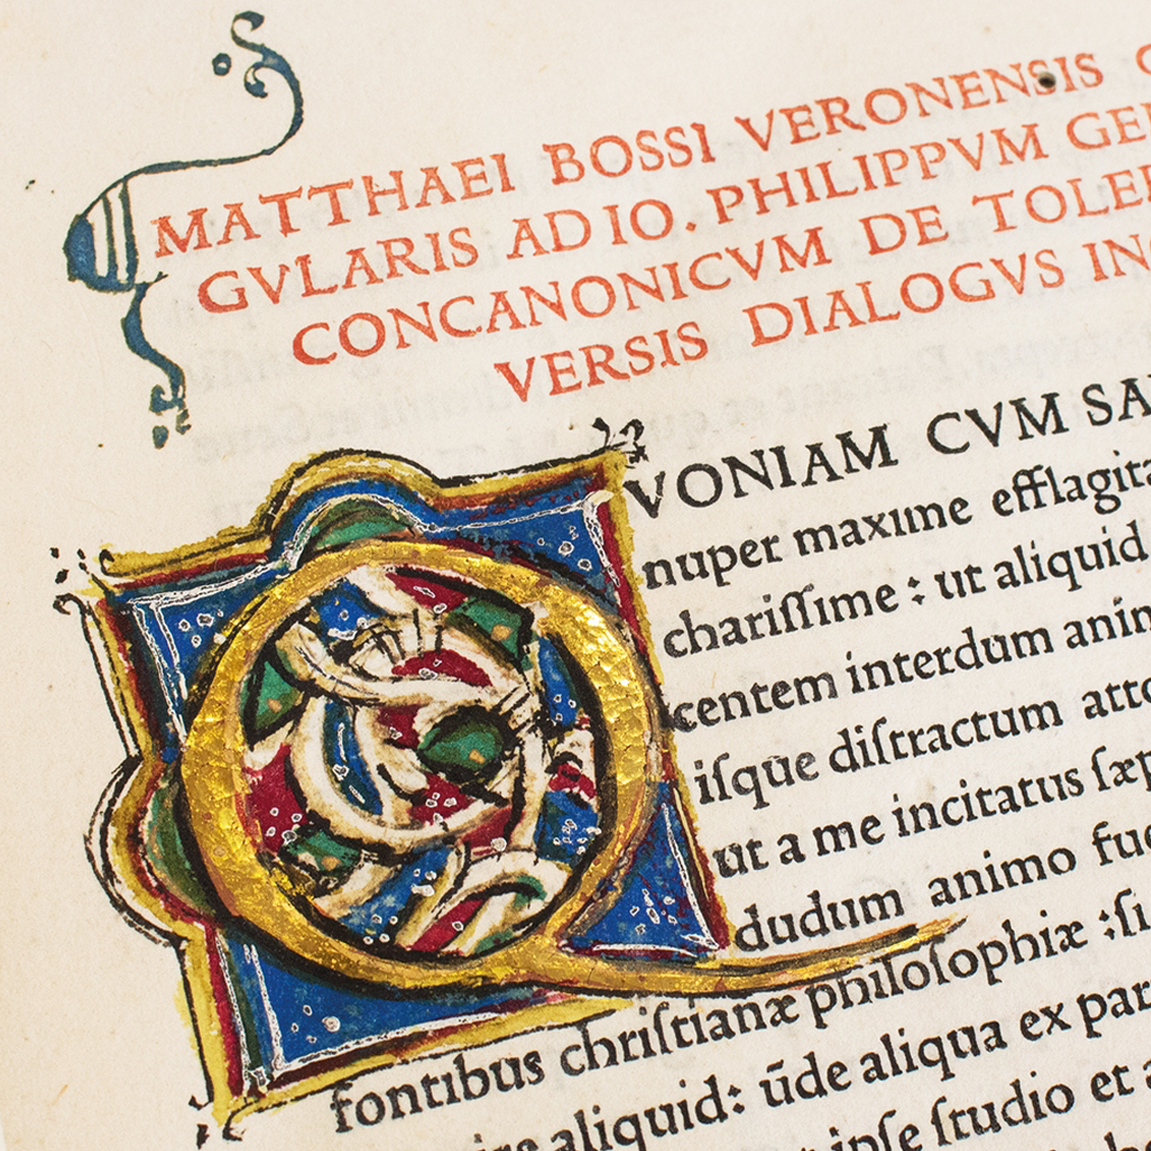 MATTHAEI BOSSI VERONENSIS C
GVLARIS AD IO. PHILIPPVM GE
CONCANONICVM DE TOLE
VERSIS DIALOGVS IN
QVONIAM CVM SA
nuper maxime efflagita
chariſſime : ut aliquid
centem interdum anim
iſque diſtractum atto
ut a me incitatus ſæp
dudum animo fue
fontibus chriſtianæ philoſophiæ :ſi
aliquid: ūde aliqua ex par
ipſe ſtudio et a